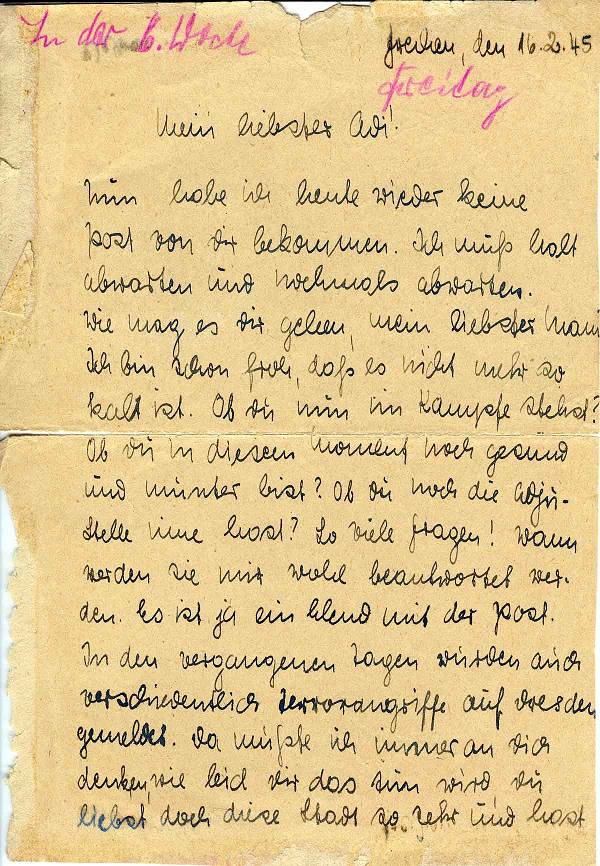 In der 6. Woche
Frechen, den 16.2.45
Freitag
Mein liebster Adi!
Nun habe ich heute wieder keine
Post von dir bekommen. Ich muß halt
abwarten und nochmals abwarten.
Wie mag es dir gehen, mein liebster Mann
Ich bin schon froh, daß es nicht mehr so
kalt ist. Ob du nun im Kampfe stehst?
Ob du in diesem Moment noch gesund
und munter bist? Ob du noch die Adju-
stelle inne hast? So viele Fragen! Wann
werden sie mir wohl beantwortet wer-
den. Es ist ja ein Elend mit der Post.
In den vergangenen Tagen wurden auch
verschiedentlich Terrorangriffe auf Dresden
gemeldet. Da mußte ich immer an dich
denken, wie leid dir das tun wird du
liebst doch diese Stadt so sehr und hast